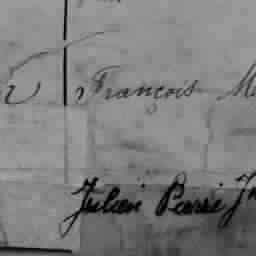 François M
Julien Pierre J